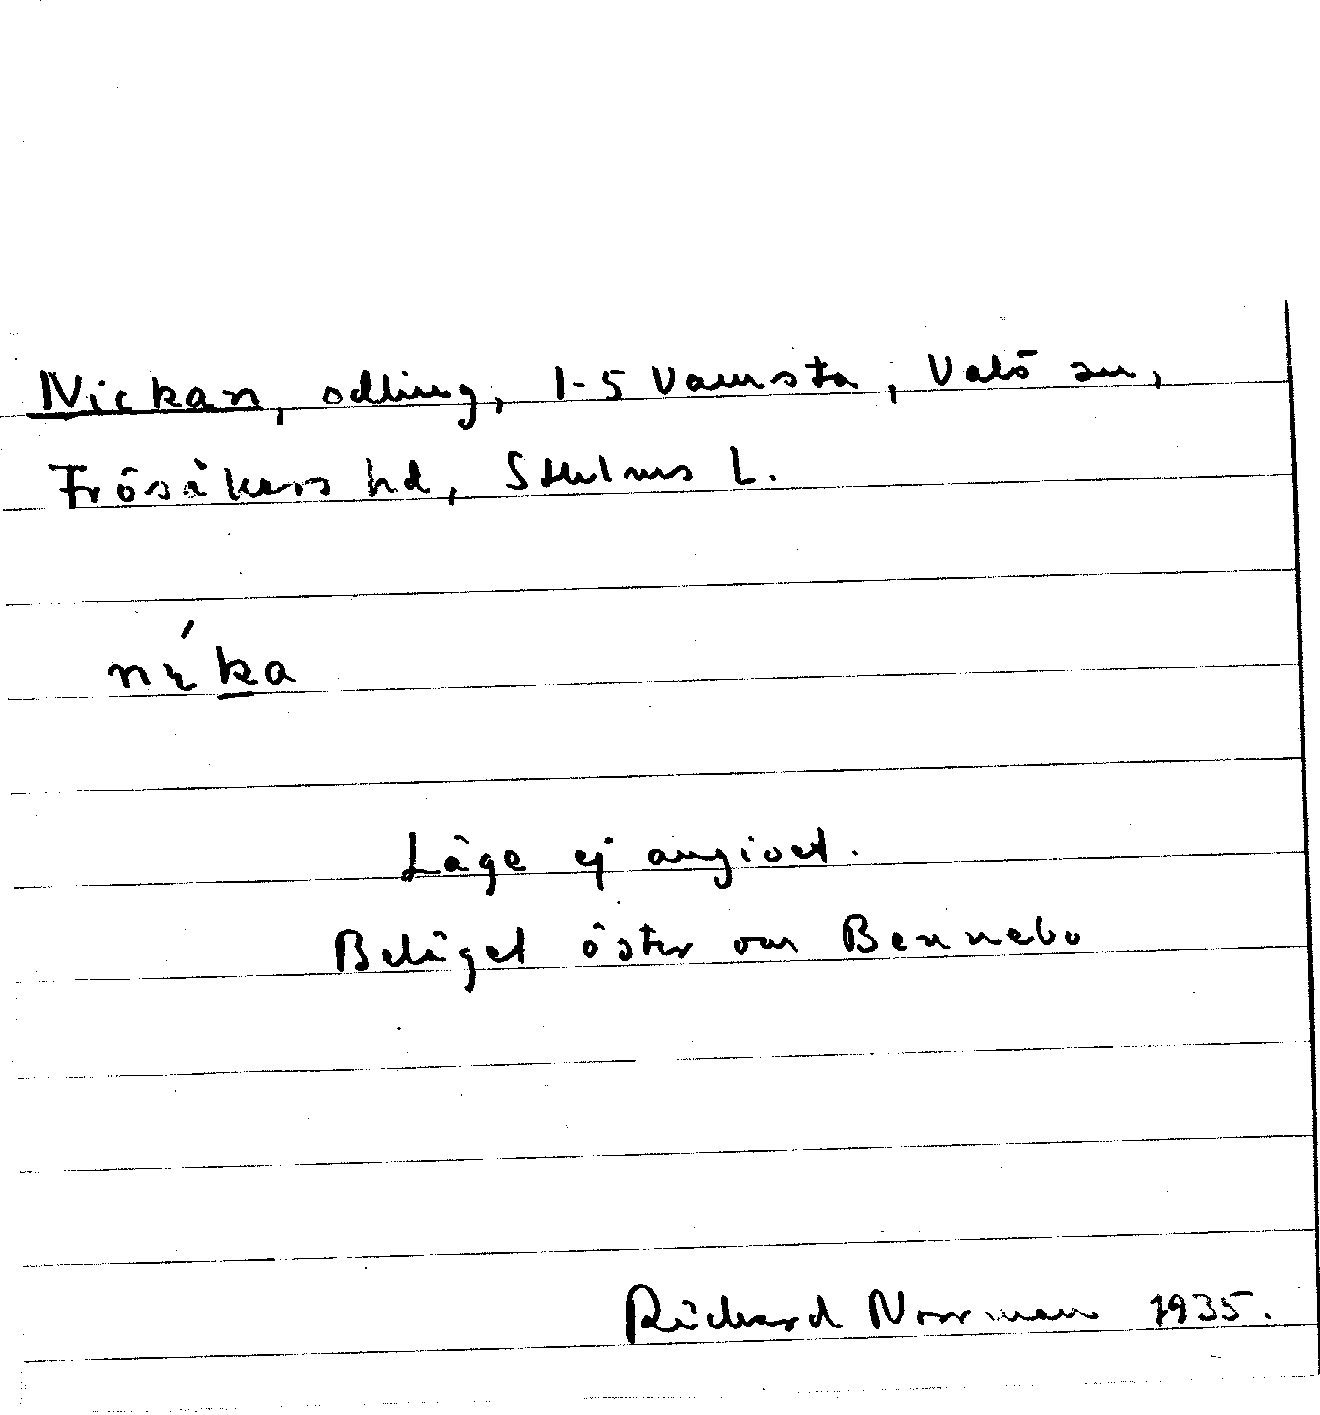 Nickan, odling, 1-5 Vamsta, Valö sn,
Frösåkers hd, Sthlms L.
nı́ka
Läge ej angivet.
Beläget öster om Bennebo
Richard Norrman 1935.